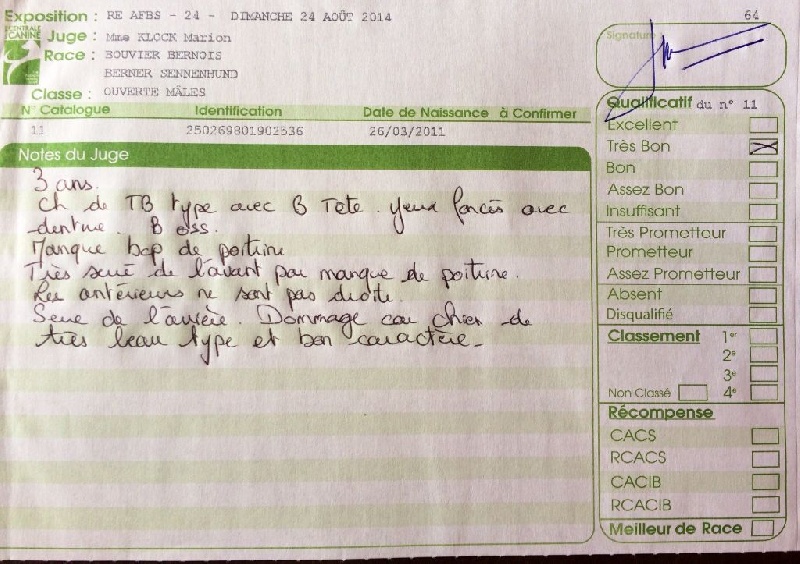 Exposition : RE AFBS - 24 - DIMANCHE 24 AOÛT 2014
64
CENTRALE
CANINE
Juge : Mme KLOCK Marion
Race : BOUVIER BERNOIS
BERNER SENNENHUND
Classe : OUVERTE MÂLES
N° Catalogue Identification Date de Naissance à Confirmer
11 250269801902536 26/03/2011
Notes du Juge
3 ans.
Ch de TB type avec B Tete. Yeux foncés avec
dentine. B oss.
Manque bcp de poitrine
Très serré de l'avant par manque de poitrine.
Les antérieurs ne sont pas droits.
Serré de l'arrière. Dommage car chien de
très beau type et bon caractère.
Signature
Qualificatif du n° 11
Excellent
Très Bon
Bon
Assez Bon
Insuffisant
Très Prometteur
Prometteur
Assez Prometteur
Absent
Disqualifié
Classement 1er
2e
3e
Non Classé 4e
Récompense
CACS
RCACS
CACIB
RCACIB
Meilleur de Race